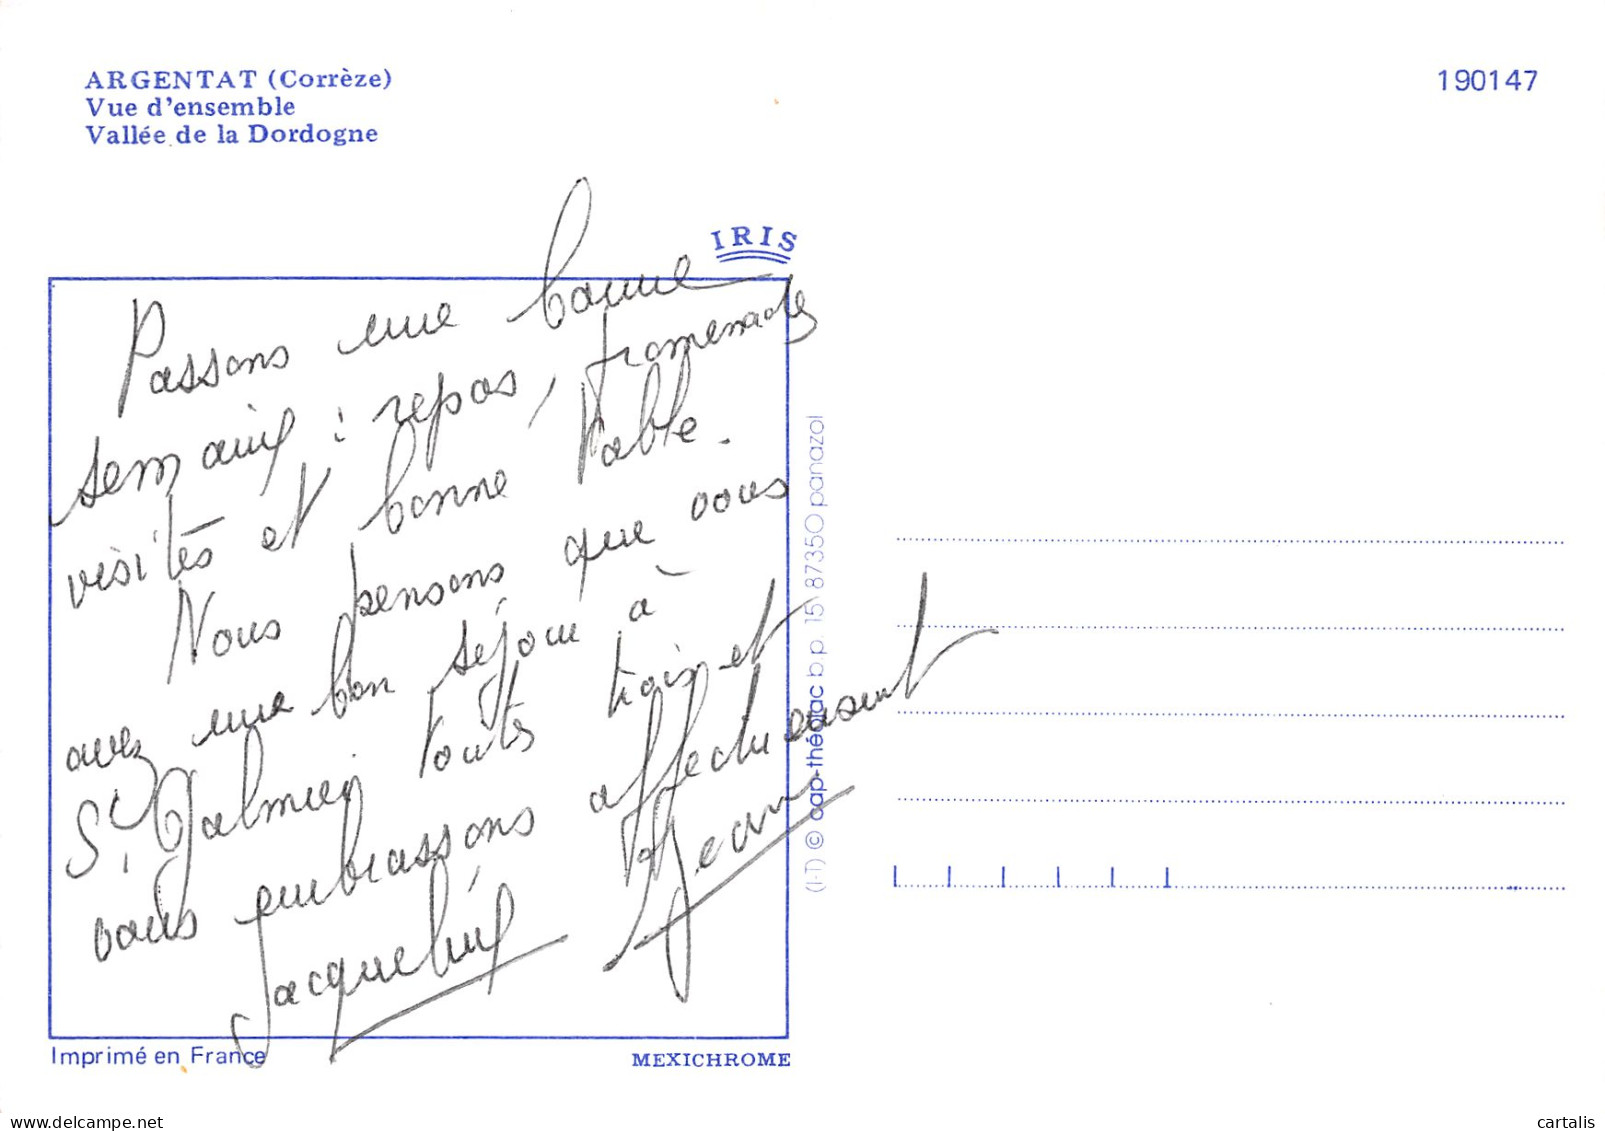 ARGENTAT (Corrèze)
Vue d'ensemble
Vallée de la Dordogne
190147
IRIS
Passons une bonne
semaine : repos, promenades
visites et bonne table.
Nous pensons que vous
avez une bon séjour à
St Galmier toutes trois et
vous embrassons affectueusement
Jacqueline Jean
(I-T) © cap-théojac b p. 15 87350 panazol
Imprimé en France
MEXICHROME
delcampe.net
cartalis